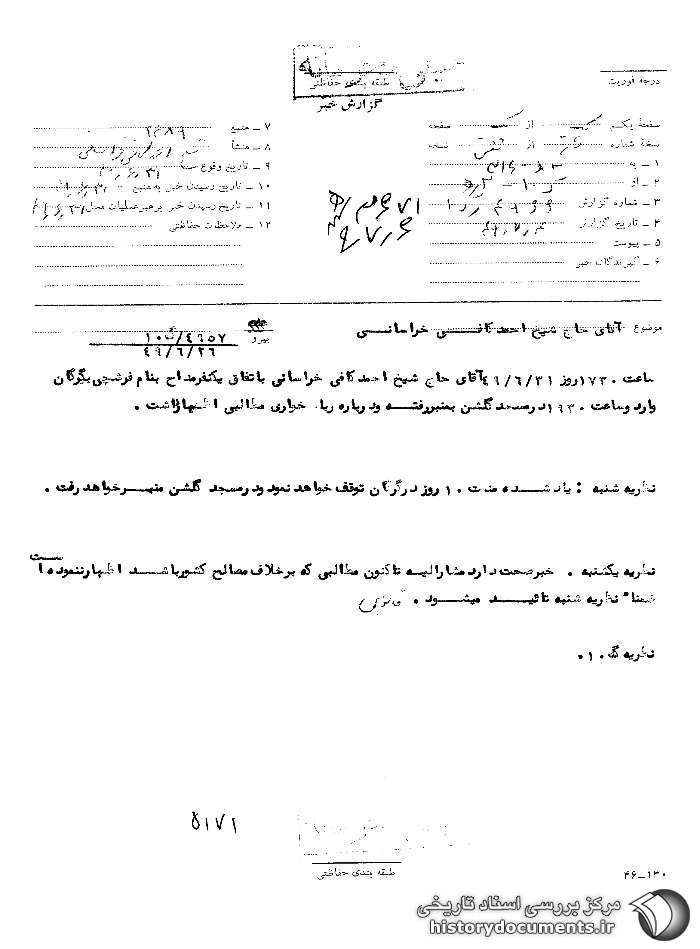 خیلی محرمانه
طبقه بندی حفاظتی
گزارش خبر
درجه فوریت
صفحهٔ یکم یک از یک صفحه
نسخهٔ شماره از نسخه
۱ ـ به ۳۱۶
۲ ـ از ک ۱۰
۳ ـ شماره گزارش
۴ ـ تاریخ گزارش
۵ ـ پیوست
۶ ـ گیرندگان خبر
۷ ـ منبع ۱۳۸۹
۸ ـ منشأ
۹ ـ تاریخ وقوع
۱۰ ـ تاریخ رسیدن خبر به منبع
۱۱ ـ تاریخ رسیدن خبر به رهبر عملیات محل
۱۲ ـ ملاحظات حفاظتی
موضوع آقای حاج شیخ احمد کافی خراسانی
پیرو ۴۶۵۷/ک۱۰
۴۹/۶/۲۶
ساعت ۱۷۳۰ روز ۴۹/۶/۳۱ آقای حاج شیخ احمد کافی خراسانی باتفاق یکنفر مداح بنام فرشچی بگرگان
وارد وساعت ۱۹۳۰ در مسجد گلشن بمنبر رفته ودرباره رباء خواری مطالبی اظهار داشت .
نظریه شنبه : یاد شده مدت ۱۰ روز درگرگان توقف خواهد نمود ودر مسجد گلشن منبر خواهد رفت .
نظریه یکشنبه . خبر صحت دارد مشارالیه تاکنون مطالبی که برخلاف مصالح کشور باشد اظهار ننموده است
ضمناً نظریه شنبه تائید میشود .
نظریه ک ۱۰.
۵۱۷۱
طبقه بندی حفاظتی
۴۶-۱۳۰
مرکز بررسی اسناد تاریخی
historydocuments.ir